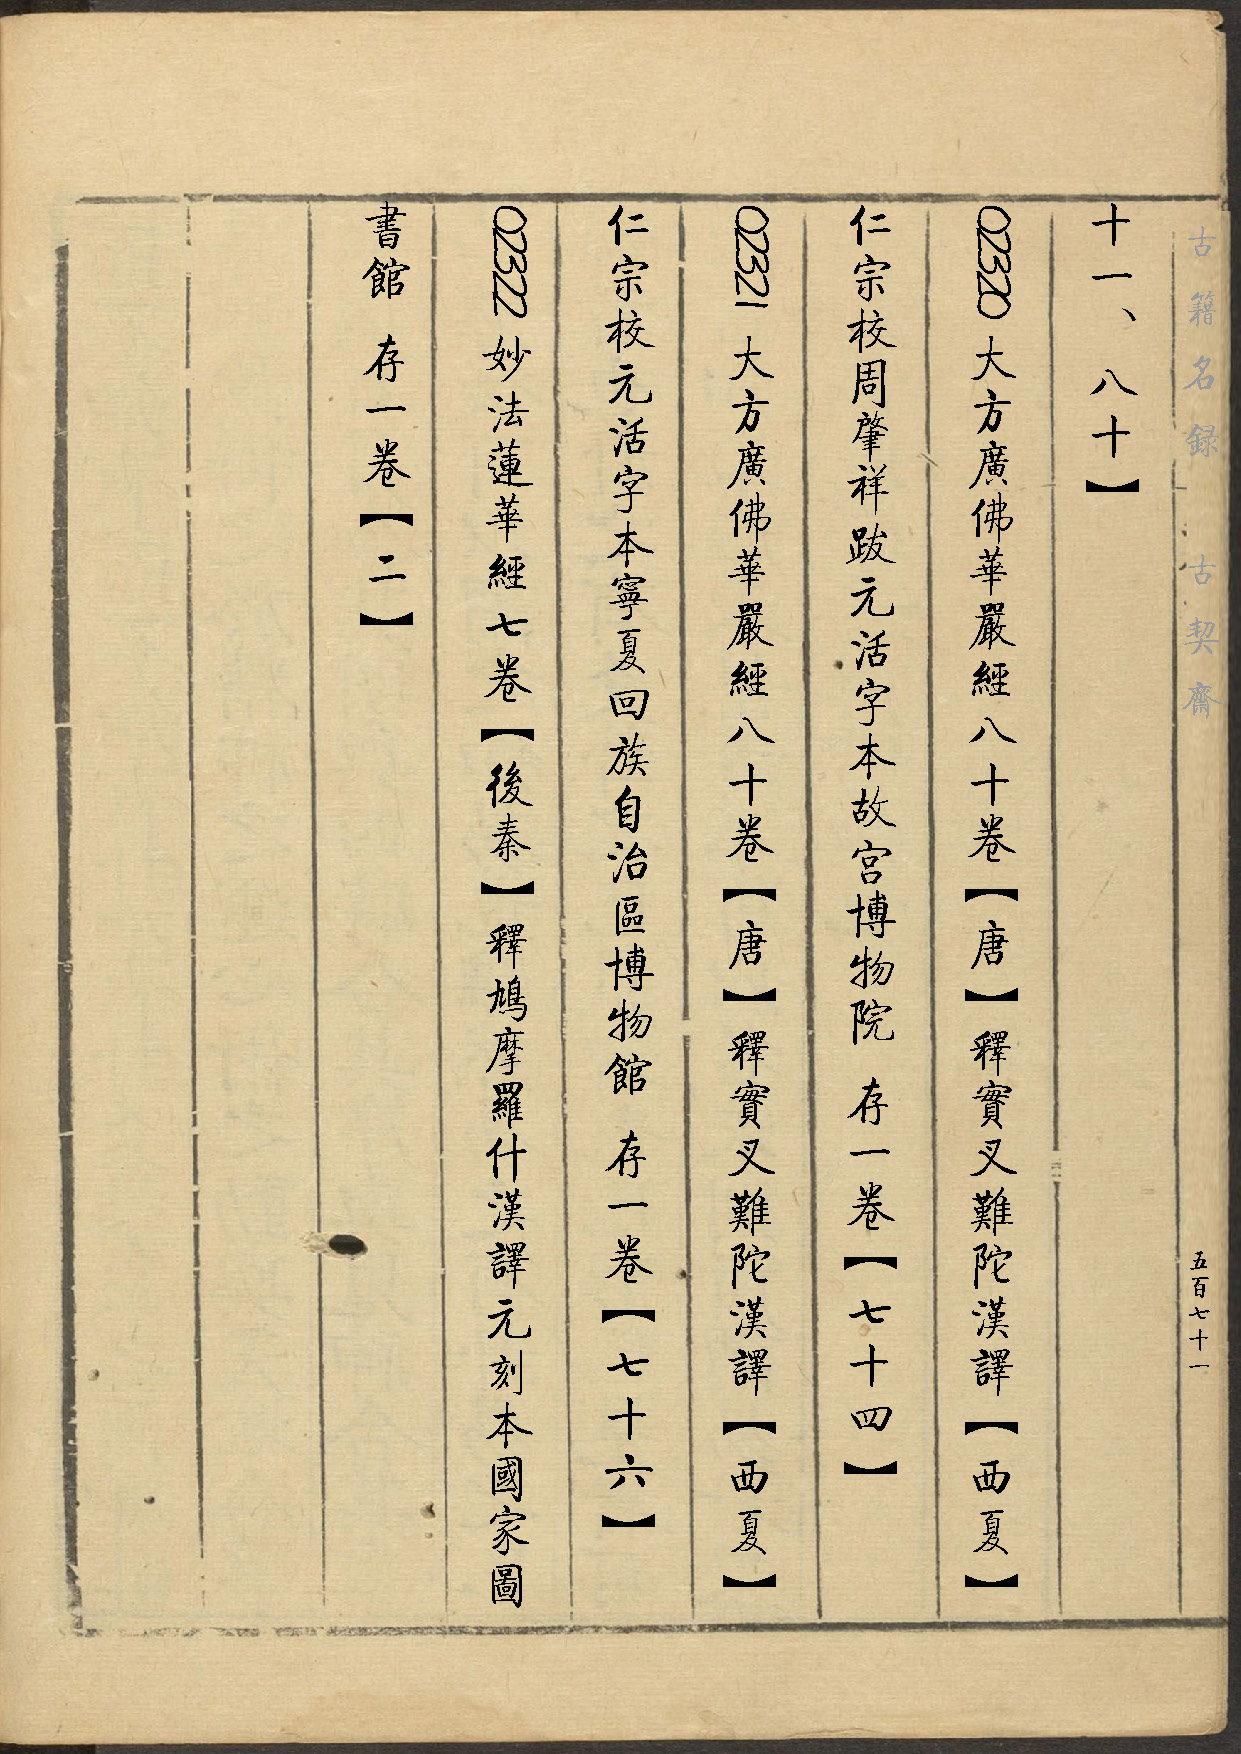 古籍名録 古契齋
五百七十一
十一、八十】
02320 大方廣佛華嚴經八十卷【唐】釋實叉難陀漢譯【西夏】
仁宗校周肇祥跋元活字本故宮博物院 存一卷【七十四】
02321 大方廣佛華嚴經八十卷【唐】釋實叉難陀漢譯【西夏】
仁宗校元活字本寧夏回族自治區博物館 存一卷【七十六】
02322 妙法蓮華經七卷【後秦】釋鳩摩羅什漢譯元刻本國家圖
書館 存一卷【二】